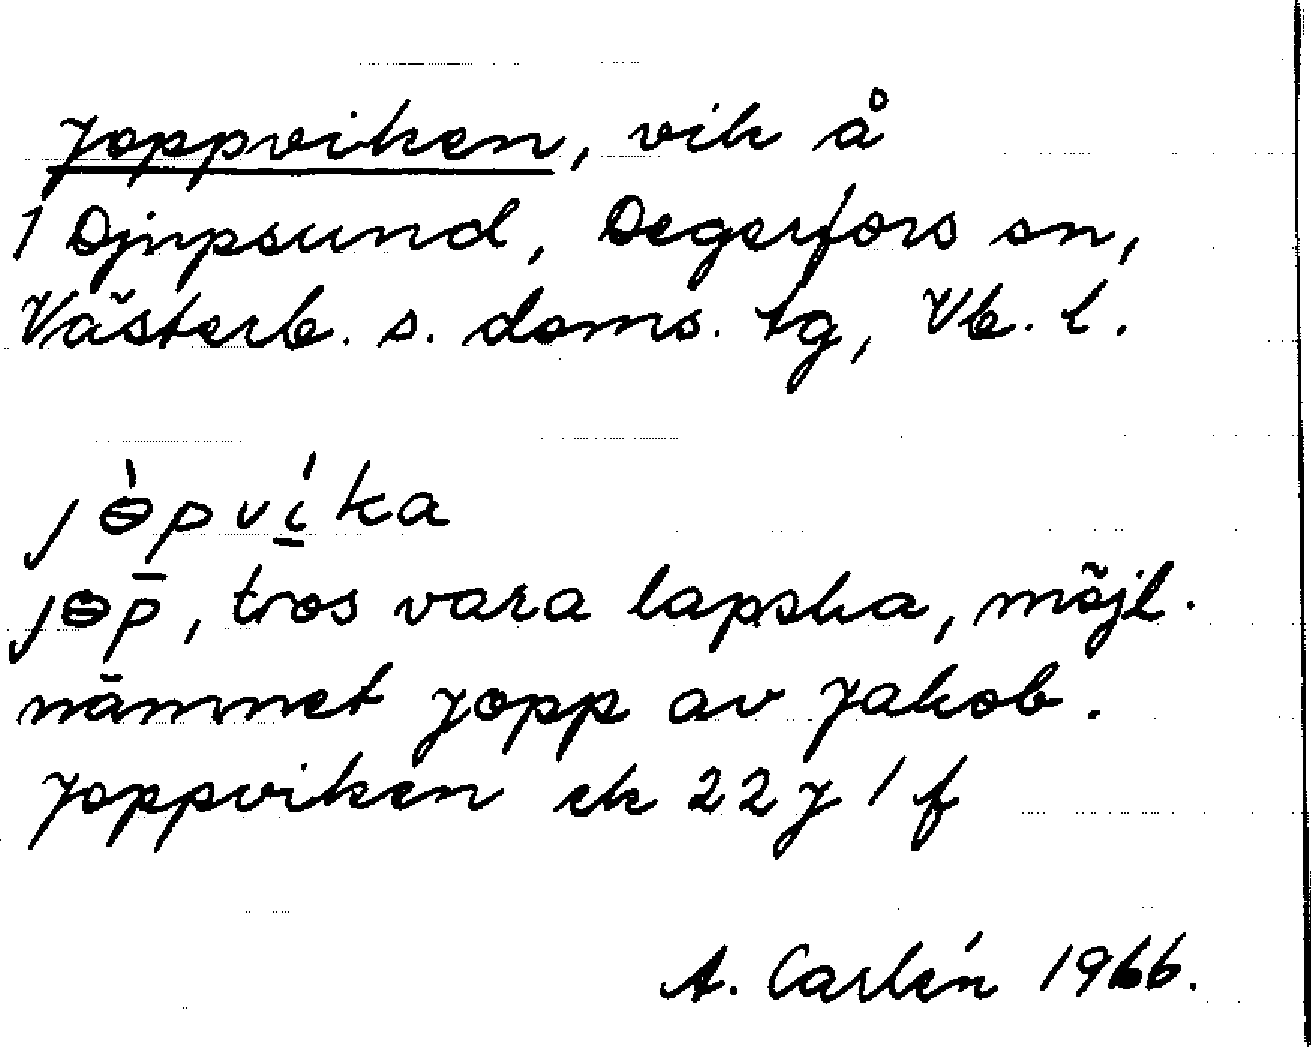 Joppviken, vik å
1 Djupsund, Degerfors sn,
Västerb. s. doms. tg, Vb. l.
jɵ̀pví̱ka
jɵp̄, tros vara lapska, möjl.
nämnet Jopp av Jakob.
Joppviken ek 22 J 1 f
A. Carlén 1966.